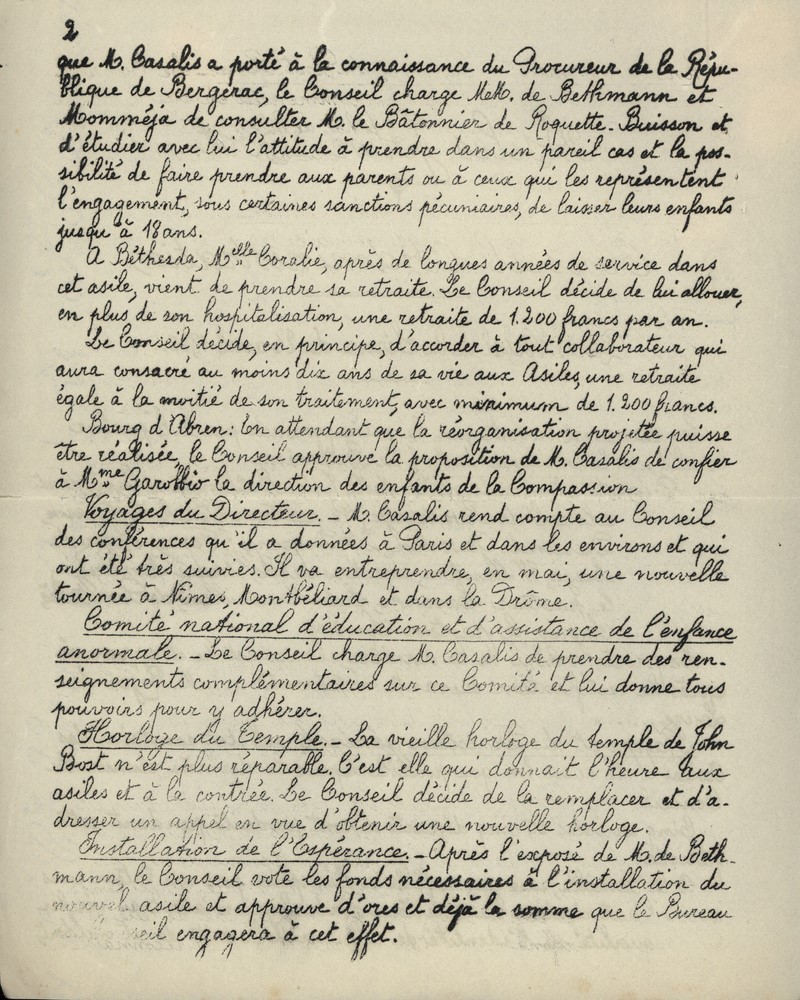 2
que M. Casalis a porté à la connaissance du Procureur de la Répu-
blique de Bergerac, le Conseil charge MeM. de Bethmann et
Momméja de consulter M. le Bâtonnier de Roquette-Buisson et
d'étudier avec lui l'attitude à prendre dans un pareil cas et la pos-
sibilité de faire prendre aux parents ou à ceux qui les représentent
l'engagement, sous certaines sanctions pécuniaires, de laisser leurs enfants
jusqu'à 18 ans.
A Béthesda, Melle Coralie, après de longues années de service dans
cet asile, vient de prendre sa retraite. Le Conseil décide de lui allouer,
en plus de son hospitalisation, une retraite de 1.200 francs par an.
Le Conseil décide, en principe, d'accorder à tout collaborateur qui
aura consacré au moins dix ans de sa vie aux Asiles, une retraite
égale à la moitié de son traitement, avec minimum de 1.200 francs.
Bourg d'Abren : En attendant que la réorganisation projetée puisse
être réalisée, le Conseil approuve la proposition de M. Casalis de confier
à Mme Garolbio la direction des enfants de la Compassion
Voyages du Directeur. - M. Casalis rend compte au Conseil
des conférences qu'il a données à Paris et dans les environs et qui
ont été très suivies. Il va entreprendre, en mai, une nouvelle
tournée à Nîmes, Montbéliard et dans la Drôme.
Comité national d'éducation et d'assistance de l'enfance
anormale. - Le Conseil charge M. Casalis de prendre des ren-
seignements complémentaires sur ce Comité et lui donne tous
pouvoirs pour y adhérer.
Horloge du Temple. - La vieille horloge du temple de John
Bost n'est plus réparable. C'est elle qui donnait l'heure aux
asiles et à la contrée. Le Conseil décide de la remplacer et d'a-
dresser un appel en vue d'obtenir une nouvelle horloge.
Installation de l'Espérance. - Après l'exposé de M. de Beth-
mann, le Conseil vote les fonds nécessaires à l'installation du
nouvel asile et approuve d'ores et déjà la somme que le Bureau
engagera à cet effet.